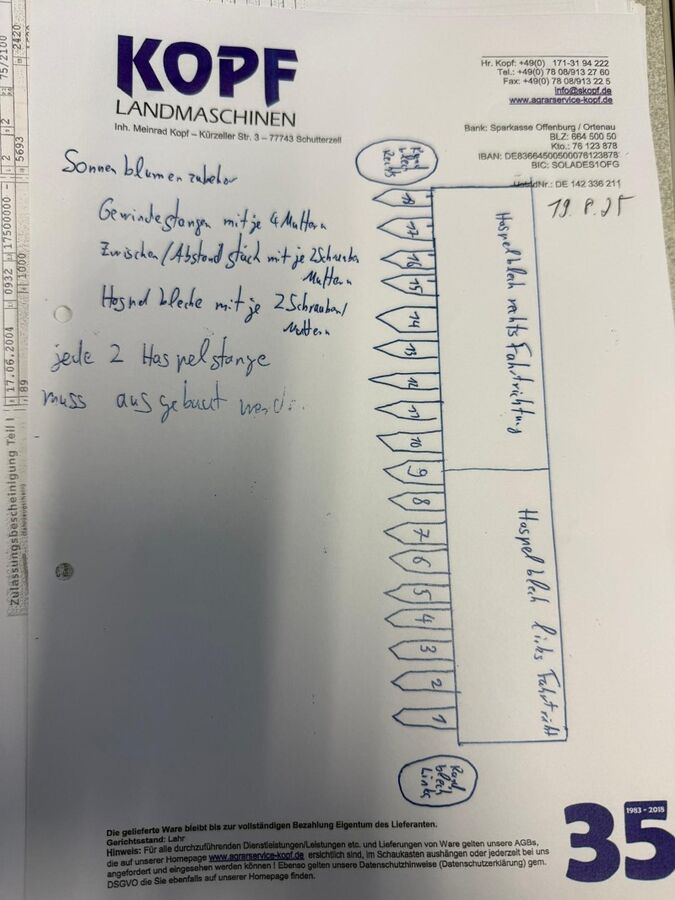 KOPF
LANDMASCHINEN
Inh. Meinrad Kopf – Kürzeller Str. 3 – 77743 Schutterzell
Hr. Kopf: +49(0) 171-31 94 222
Tel.: +49(0) 78 08/913 27 60
Fax: +49(0) 78 08/913 22 5
info@skopf.de
www.agrarservice-kopf.de
Bank: Sparkasse Offenburg / Ortenau
BLZ: 664 500 50
Kto.: 76 123 878
IBAN: DE83664500500076123878
BIC: SOLADES1OFG
UstIdNr.: DE 142 336 211
19.8.25
Sonnenblumenzubehör
Gewindestangen mit je 4 Muttern
Zwischen/Abstand stück mit je 2 Schrauben
Muttern
Haspel bleche mit je 2 Schrauben/
Muttern
jede 2 Haspelstange
muss ausgebaut werd..
Rand
blech
Rechts
18
17
16
15
14
13
12
11
10
9
8
7
6
5
4
3
2
1
Haspelblech rechts Fahrtrichtung
Haspelblech links Fahrtricht
Rand
blech
Links
Die gelieferte Ware bleibt bis zur vollständigen Bezahlung Eigentum des Lieferanten.
Gerichtsstand: Lahr
Hinweis: Für alle durchzuführenden Dienstleistungen/Leistungen etc. und Lieferungen von Ware gelten unsere AGBs,
die auf unserer Homepage www.agrarservice-kopf.de ersichtlich sind, im Schaukasten aushängen oder jederzeit bei uns
angefordert und eingesehen werden können ! Ebenso gelten unsere Datenschutzhinweise (Datenschutzerklärung) gem.
DSGVO die Sie ebenfalls auf unserer Homepage finden.
1983 - 2018
35
Zulassungsbescheinigung Teil I
17.06.2004
0932
17500000
2
2
75/2100
89
1000
5693
2420